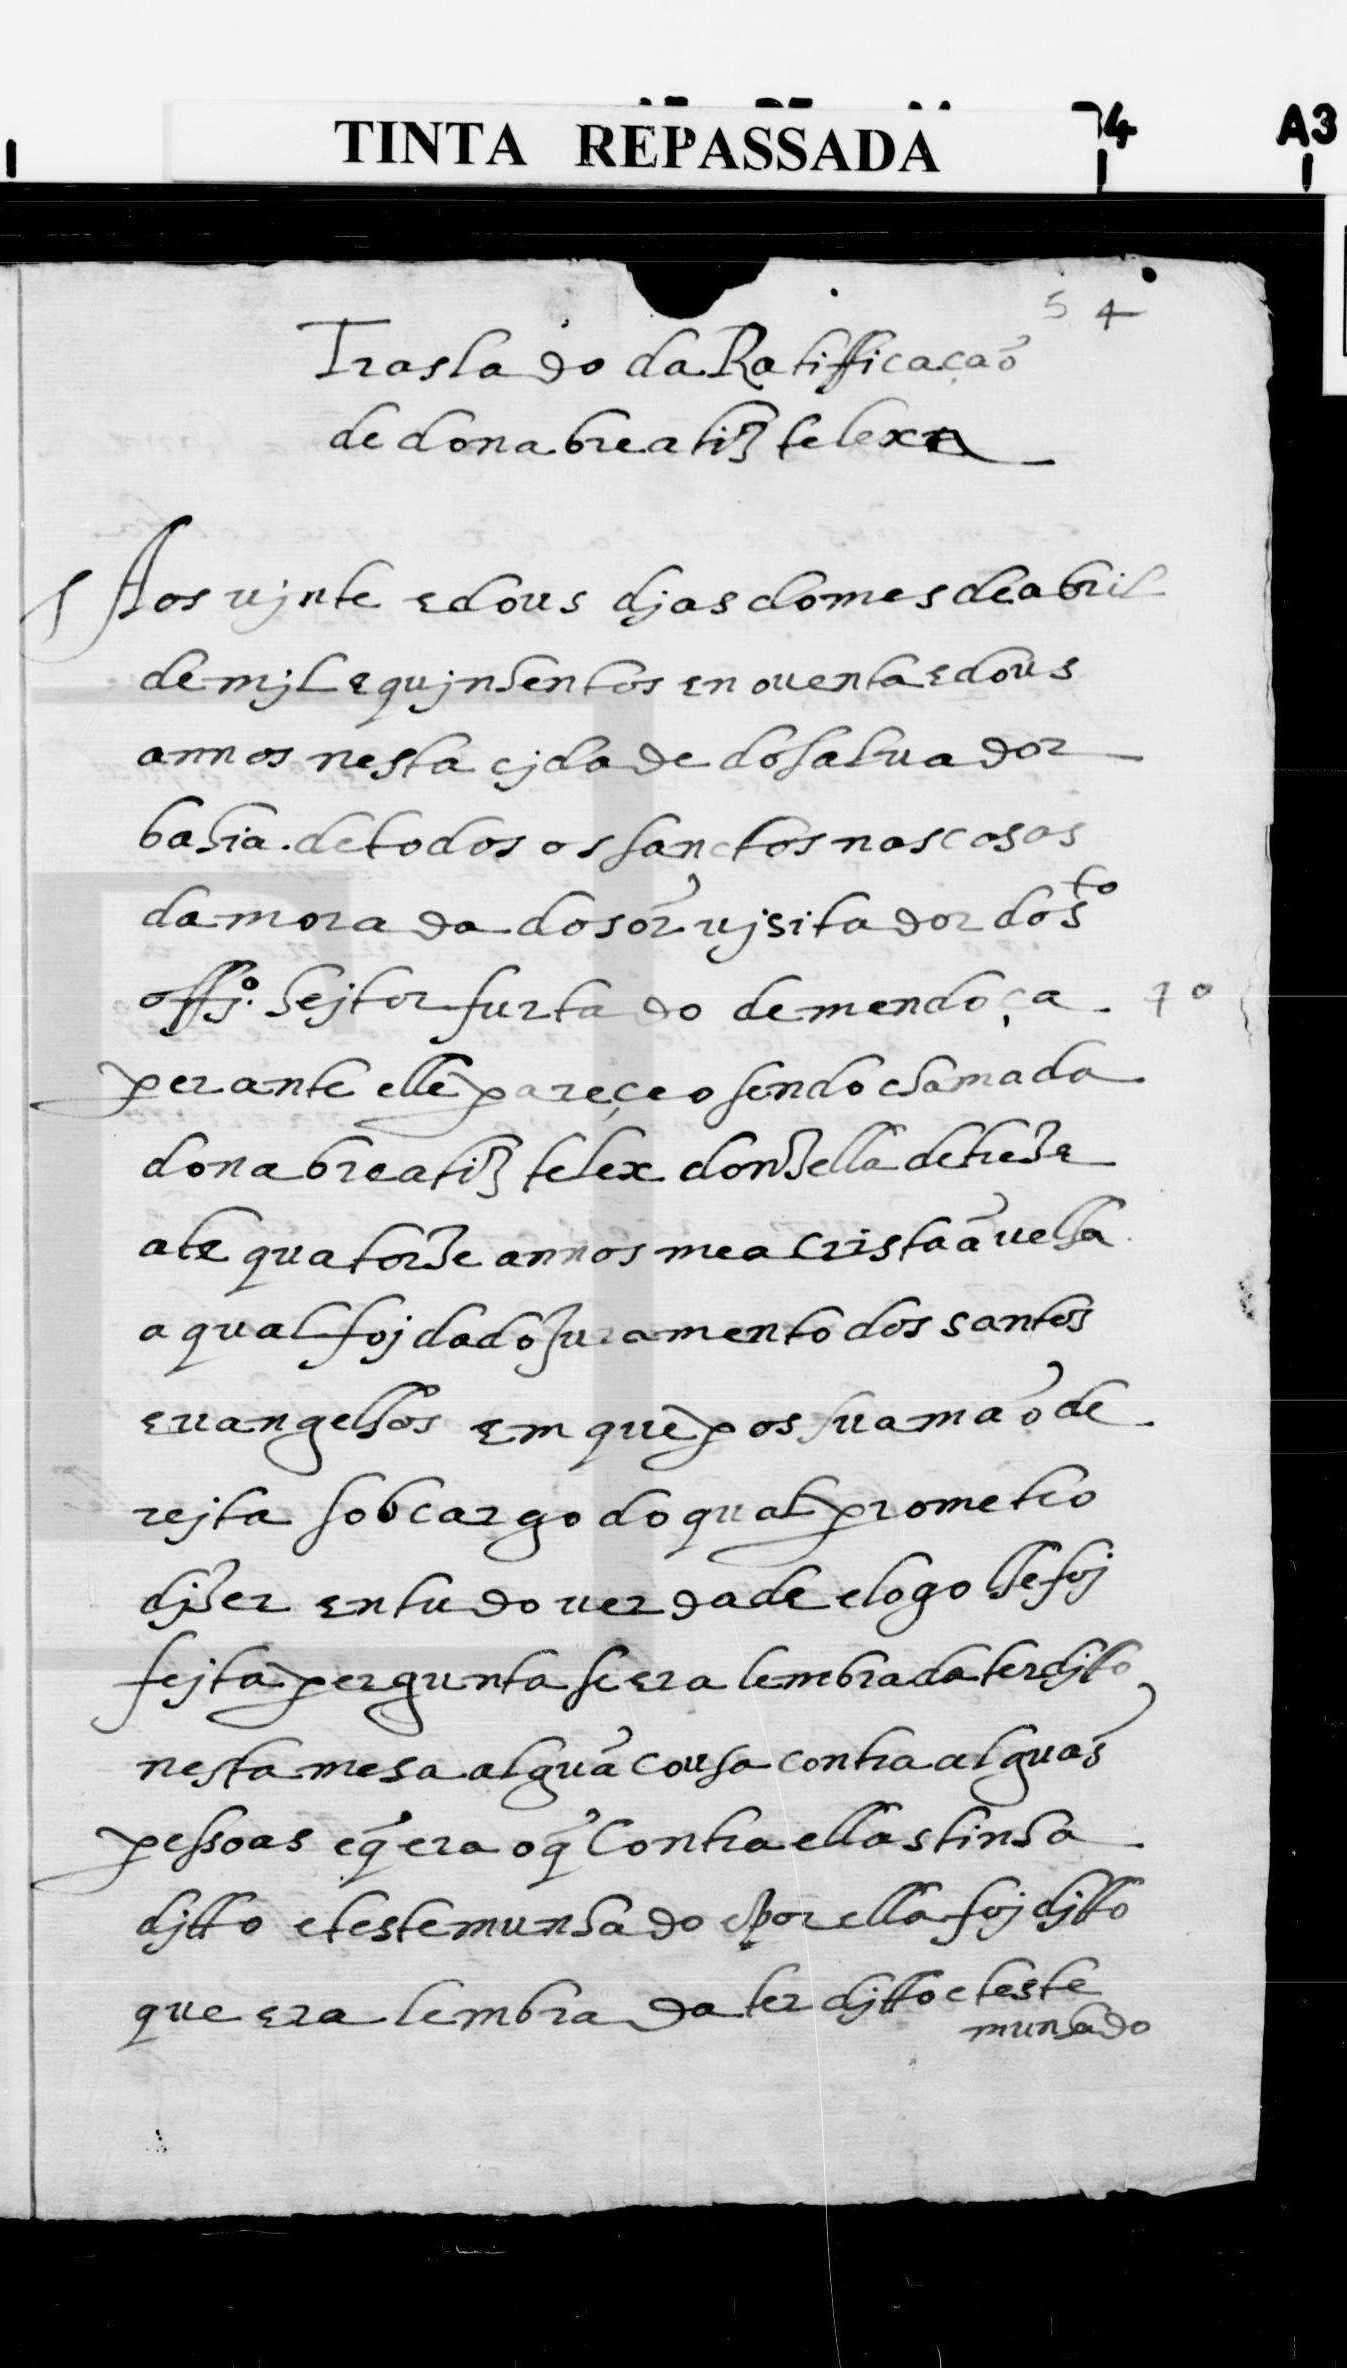 4 A3
TINTA REPASSADA
5 4
Traslado da Ratifficação
de dona breatiz telex
Aos vjnte e dous djas do mes de abril
de mjl e qujnhentos e noventa e dous
annos nesta cjdade do saluador
bahia de todos os sanctos nas casas
da morada do sõr vjsitador do sto
offjo. hejtor furtado de mendoça. 1o
perante elle pareçeo sendo chamada
dona breatiz telex donzella de treze
ate quatorze annos mea cristaã velha
a qual foj dado Juramento dos santos
euangelhos em que pos sua maõ de
rejta sob cargo do qual prometeo
djzer em tudo verdade e logo lhe foj
fejta pergunta se era lembrada ter djtto
nesta mesa alguã cousa contra alguãs
pessoas e q̃ era o q̃ contra ellas tinha
djtto e testemunhado e por ella foj djtto
que era lembrada ter djtto e teste
munhado